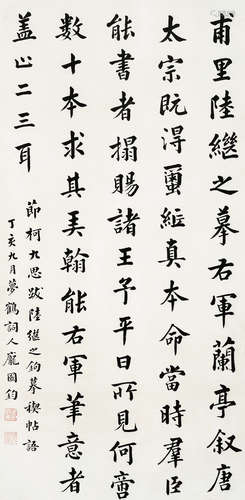 甫里陸繼之摹右軍蘭亭叙唐
太宗既得璽紙真本命當時羣臣
能書者搨賜諸王予平日所見何啻
數十本求其美翰能右軍筆意者
蓋止二三耳
節柯九思跋陸繼之鉤摹禊帖語
丁亥九月夢鶴詞人龐國鈞